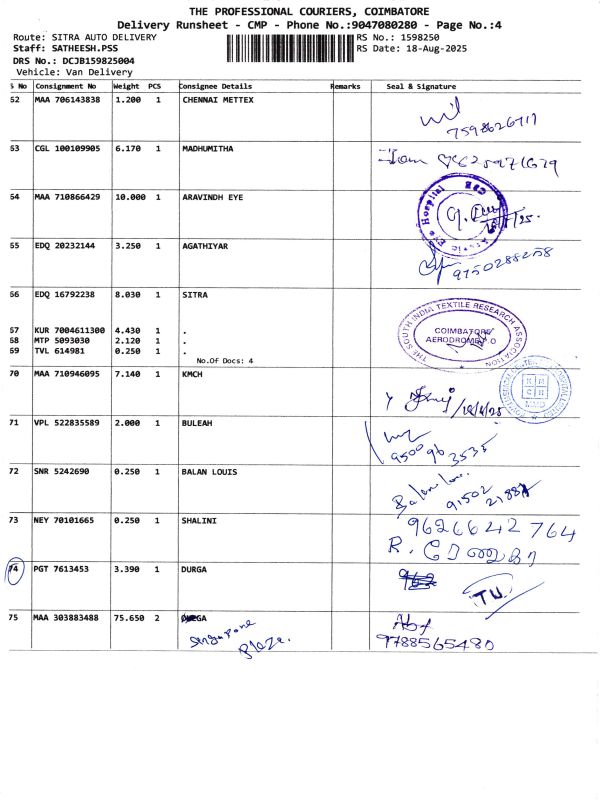 THE PROFESSIONAL COURIERS, COIMBATORE
Delivery Runsheet - CMP - Phone No.:9047080280 - Page No.:4
Route: SITRA AUTO DELIVERY RS No.: 1598250
Staff: SATHEESH.PSS RS Date: 18-Aug-2025
DRS No.: DCJB159825004
Vehicle: Van Delivery
No Consignment No Weight PCS Consignee Details Remarks Seal & Signature
62 MAA 706143838 1.200 1 CHENNAI METTEX
7598626711
63 CGL 100109905 6.170 1 MADHUMITHA
64 MAA 710866429 10.000 1 ARAVINDH EYE
Eye Hospital
65 EDQ 20232144 3.250 1 AGATHIYAR
9750288258
66 EDQ 16792238 8.030 1 SITRA
67 KUR 7004611300 4.430 1 .
68 MTP 5093030 2.120 1 .
69 TVL 614981 0.250 1 .
No.Of Docs: 4
THE SOUTH INDIA TEXTILE RESEARCH ASSOCIATION
COIMBATORE
AERODROME P.O
70 MAA 710946095 7.140 1 KMCH
71 VPL 522835589 2.000 1 BULEAH
95009 63535
72 SNR 5242690 0.250 1 BALAN LOUIS
73 NEY 70101665 0.250 1 SHALINI
9626642764
74 PGT 7613453 3.390 1 DURGA
75 MAA 303883488 75.650 2
Singapore
Plaza.
9788565480